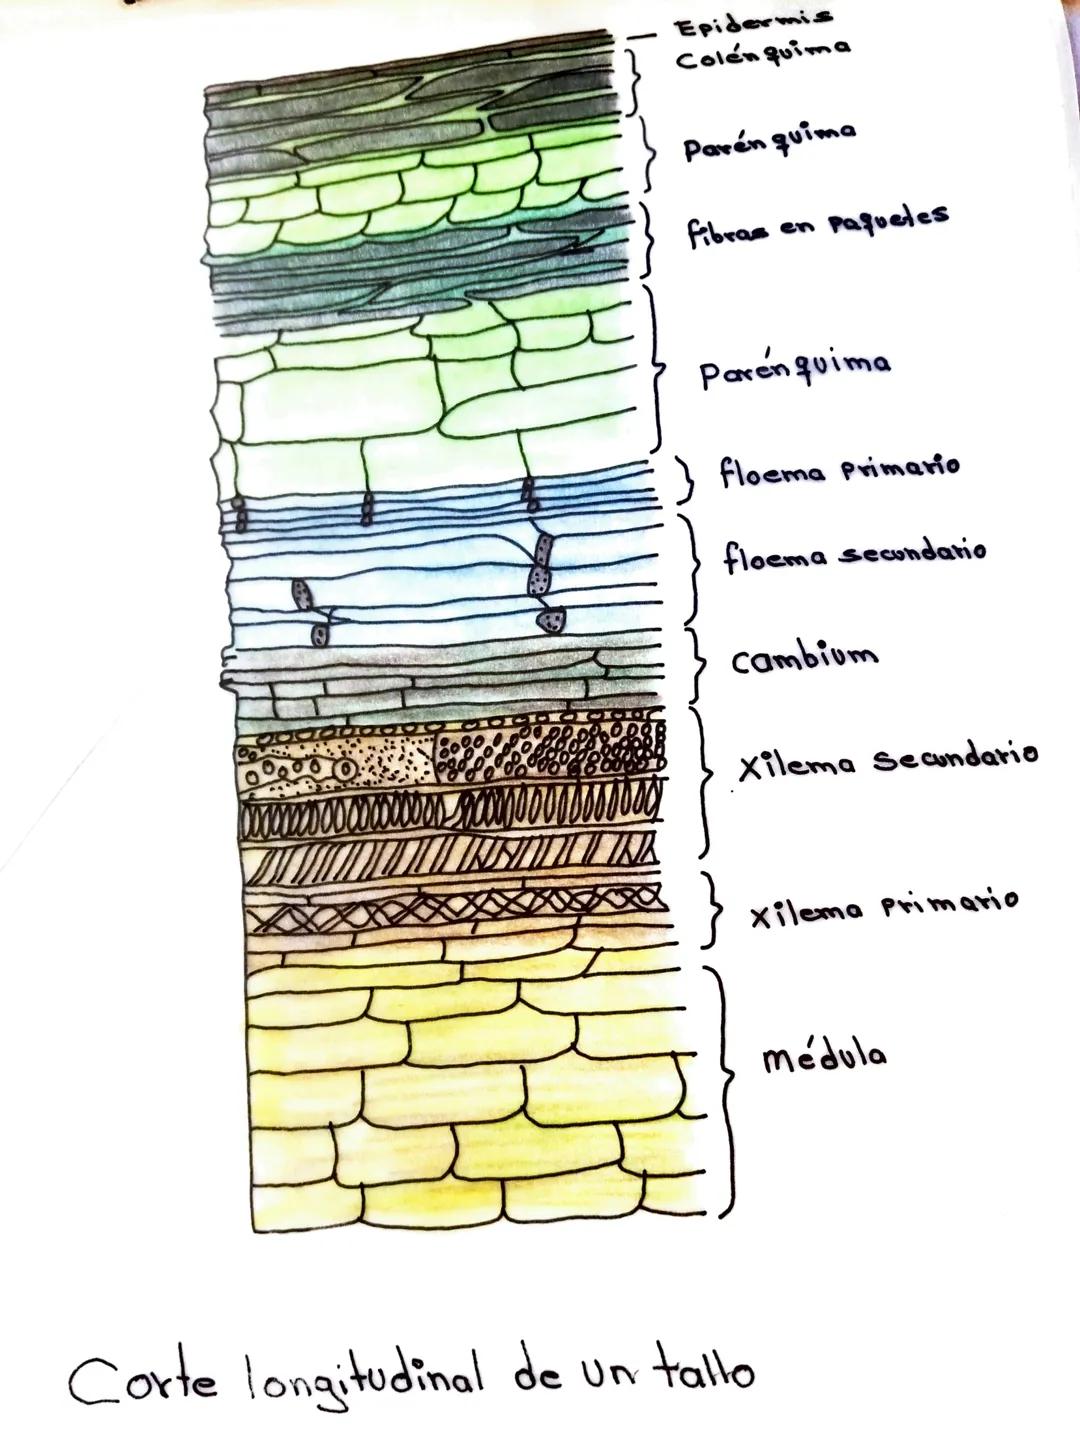 Epidermis
Colénquima
Parénquima
fibras en paquetes
Parénquima
floema primario
floema secundario
cambium
Xilema Secundario
Xilema Primario
médula
Corte longitudinal de un tallo